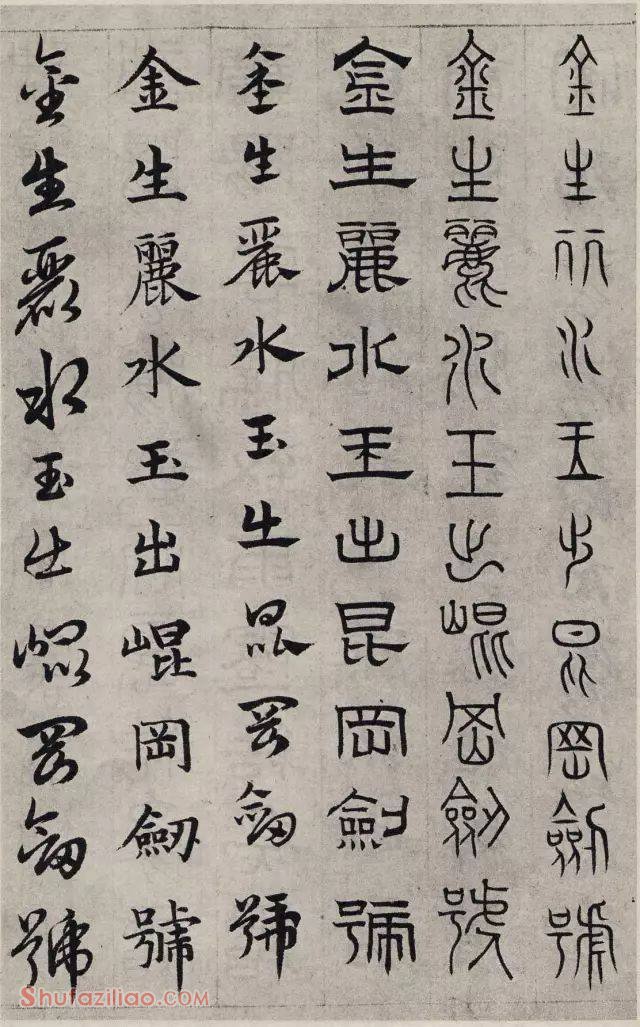 金生麗水玉出昆岡劍號
金生麗水玉出崐岡劍號
金生麗水玉出昆岡劍號
金生麗水玉出崐岡劒號
金生麗水玉出崐岡劒號
金生麗水玉出崐岡劒號
Shufaziliao.com